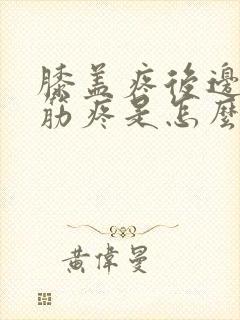 膝盖疼後邊
筋疼是怎麼
黃偉曼